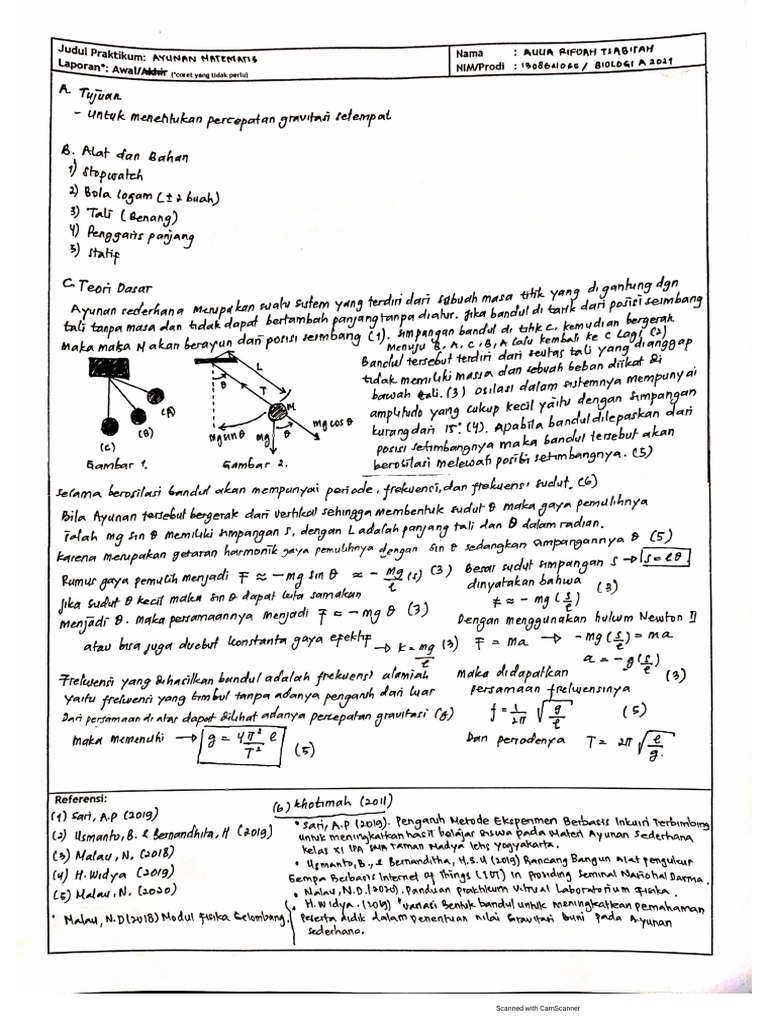 Judul Praktikum: AYUNAN MATEMATIS
Laporan*: Awal/Akhir (*coret yang tidak perlu)
Nama : AULIA RIFDAH TSABITAH
NIM/Prodi : / BIOLOGI A 2021
A. Tujuan
- Untuk menentukan percepatan gravitasi setempat
B. Alat dan Bahan
1) Stopwatch
2) Bola logam (± 2 buah)
3) Tali (Benang)
4) Penggaris panjang
5) Statif
C. Teori Dasar
Ayunan sederhana merupakan suatu sistem yang terdiri dari sebuah masa titik yang di gantung dgn
tali tanpa masa dan tidak dapat bertambah panjang tanpa diatur. Jika bandul di tarik dari posisi seimbang
maka maka M akan berayun dari posisi seimbang (1). Simpangan bandul di titik C, kemudian bergerak
menuju B, A, C, B, A lalu kembali ke C lagi (2)
Bandul tersebut terdiri dari seutas tali yang dianggap
tidak memiliki massa dan sebuah beban diikat di
bawah tali. (3) osilasi dalam sistemnya mempunyai
amplitudo yang cukup kecil yaitu dengan simpangan
kurang dari 15° (4). Apabila bandul dilepaskan dari
posisi setimbangnya maka bandul tersebut akan
berosilasi melewati posisi setimbangnya. (5)
(A)
(B)
(C)
Gambar 1.
L
θ
T
M
mg cos θ
mg sin θ
mg
θ
Gambar 2.
Selama berosilasi bandul akan mempunyai periode, frekuensi, dan frekuensi sudut. (6)
Bila Ayunan tersebut bergerak dari vertikal sehingga membentuk sudut θ maka gaya pemulihnya
ialah mg sin θ memiliki simpangan s, dengan L adalah panjang tali dan θ dalam radian.
Karena merupakan getaran harmonik gaya pemulihnya dengan sin θ sedangkan simpangannya θ (5)
Rumus gaya pemulih menjadi F ≈ - mg sin θ ≈ - mg/l (s) (3)
Besar sudut simpangan s → s = l θ
dinyatakan bahwa (3)
F ≈ - mg (s/l)
Jika sudut θ kecil maka sin θ dapat kita samakan
menjadi θ. Maka persamaannya menjadi F ≈ - mg θ (3)
Dengan menggunakan hukum Newton II
atau bisa juga disebut konstanta gaya efektif → k = mg/l (3)
F = ma → - mg (s/l) = ma
a = - g (s/l) (3)
Frekuensi yang dihasilkan bandul adalah frekuensi alamiah
yaitu frekuensi yang timbul tanpa adanya pengaruh dari luar
Dari persamaan di atas dapat dilihat adanya percepatan gravitasi (g)
maka memenuhi → g = 4π²/T² l (5)
Maka didapatkan
persamaan frekuensinya
f = 1/2π √g/l (5)
Dan periodenya T = 2π √l/g.
Referensi:
(1) Sari, A.P (2019)
(2) Usmanto, B. & Bernandhita, H (2019)
(3) Malau, N. (2018)
(4) H. Widya (2019)
(5) Malau, N. (2020)
• Malau, N.D (2018) Modul Fisika Gelombang.
(6) Khotimah (2011)
• Sari, A.P (2019). Pengaruh Metode Eksperimen Berbasis Inkuiri Terbimbing
untuk meningkatkan hasil belajar siswa pada Materi Ayunan Sederhana
kelas XI IPA SMA Taman Madya Yogyakarta.
• Usmanto, B., & Bernanditha, H.S.U (2019) Rancang Bangun Alat pengukur
Gempa Berbasis Internet of Things (IOT) in Prociding Seminal Nasional Darma.
• Malau, N.D. (2020). Panduan praktikum Vitrual Laboratorium Fisika.
• H. Widya. (2019) "Variasi Bentuk bandul untuk meningkatkan pemahaman
Peserta didik dalam penentuan nilai Gravitasi bumi pada Ayunan
sederhana.
Scanned with CamScanner